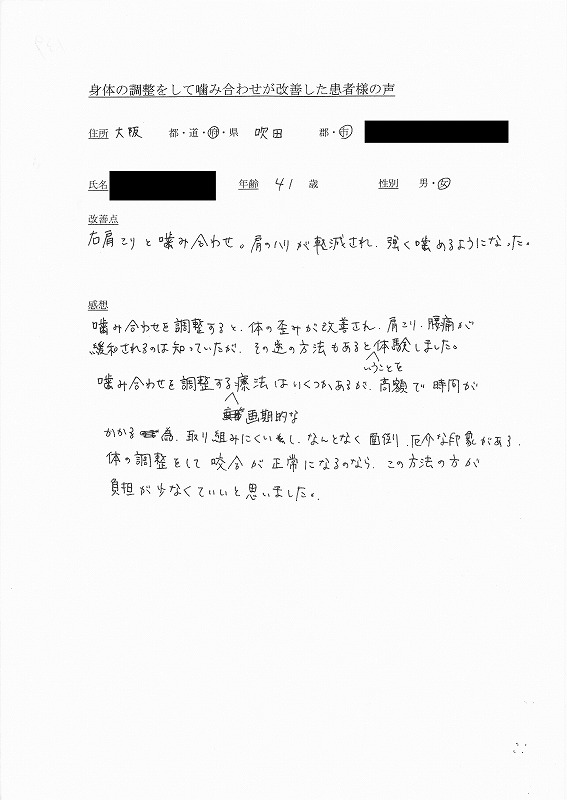 身体の調整をして噛み合わせが改善した患者様の声
住所 大阪 都・道・府・県 吹田 郡・市
氏名 年齢 41 歳 性別 男・女
改善点
右肩こりと噛み合わせ。肩のハリが軽減され、強く噛めるようになった。
感想
噛み合わせを調整すると、体の歪みが改善され、肩こり、腰痛が
緩和されるのは知っていたが、その逆の方法もあると体験しました。
いうことを
噛み合わせを調整する療法はいくつかあるが、高額で時間が
画期的な
かかる為、取り組みにくいし、なんとなく面倒、厄介な印象がある。
体の調整をして咬合が正常になるのなら、この方法の方が
負担が少なくていいと思いました。